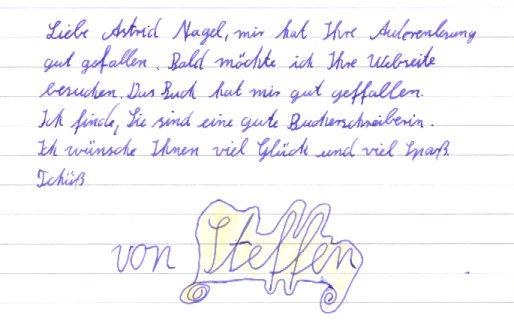 Liebe Astrid Nagel, mir hat Ihre Autorenlesung
gut gefallen. Bald möchte ich Ihre Webseite
besuchen. Das Buch hat mir gut geffallen.
Ich finde, Sie sind eine gute Bucherschreiberin.
Ich wünsche Ihnen viel Glück und viel Spaß.
Tchüß
von Steffen